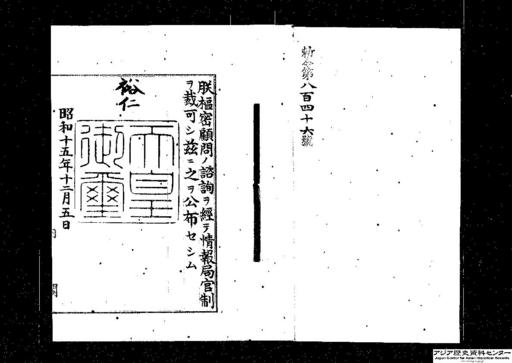 勅令第八百四十六號
朕樞密顧問ノ諮詢ヲ經テ情報局官制
ヲ裁可シ茲ニ之ヲ公布セシム
裕仁
天皇
御璽
昭和十五年十二月五日
内
閣
アジア歴史資料センター
Japan Center for Asian Historical Records